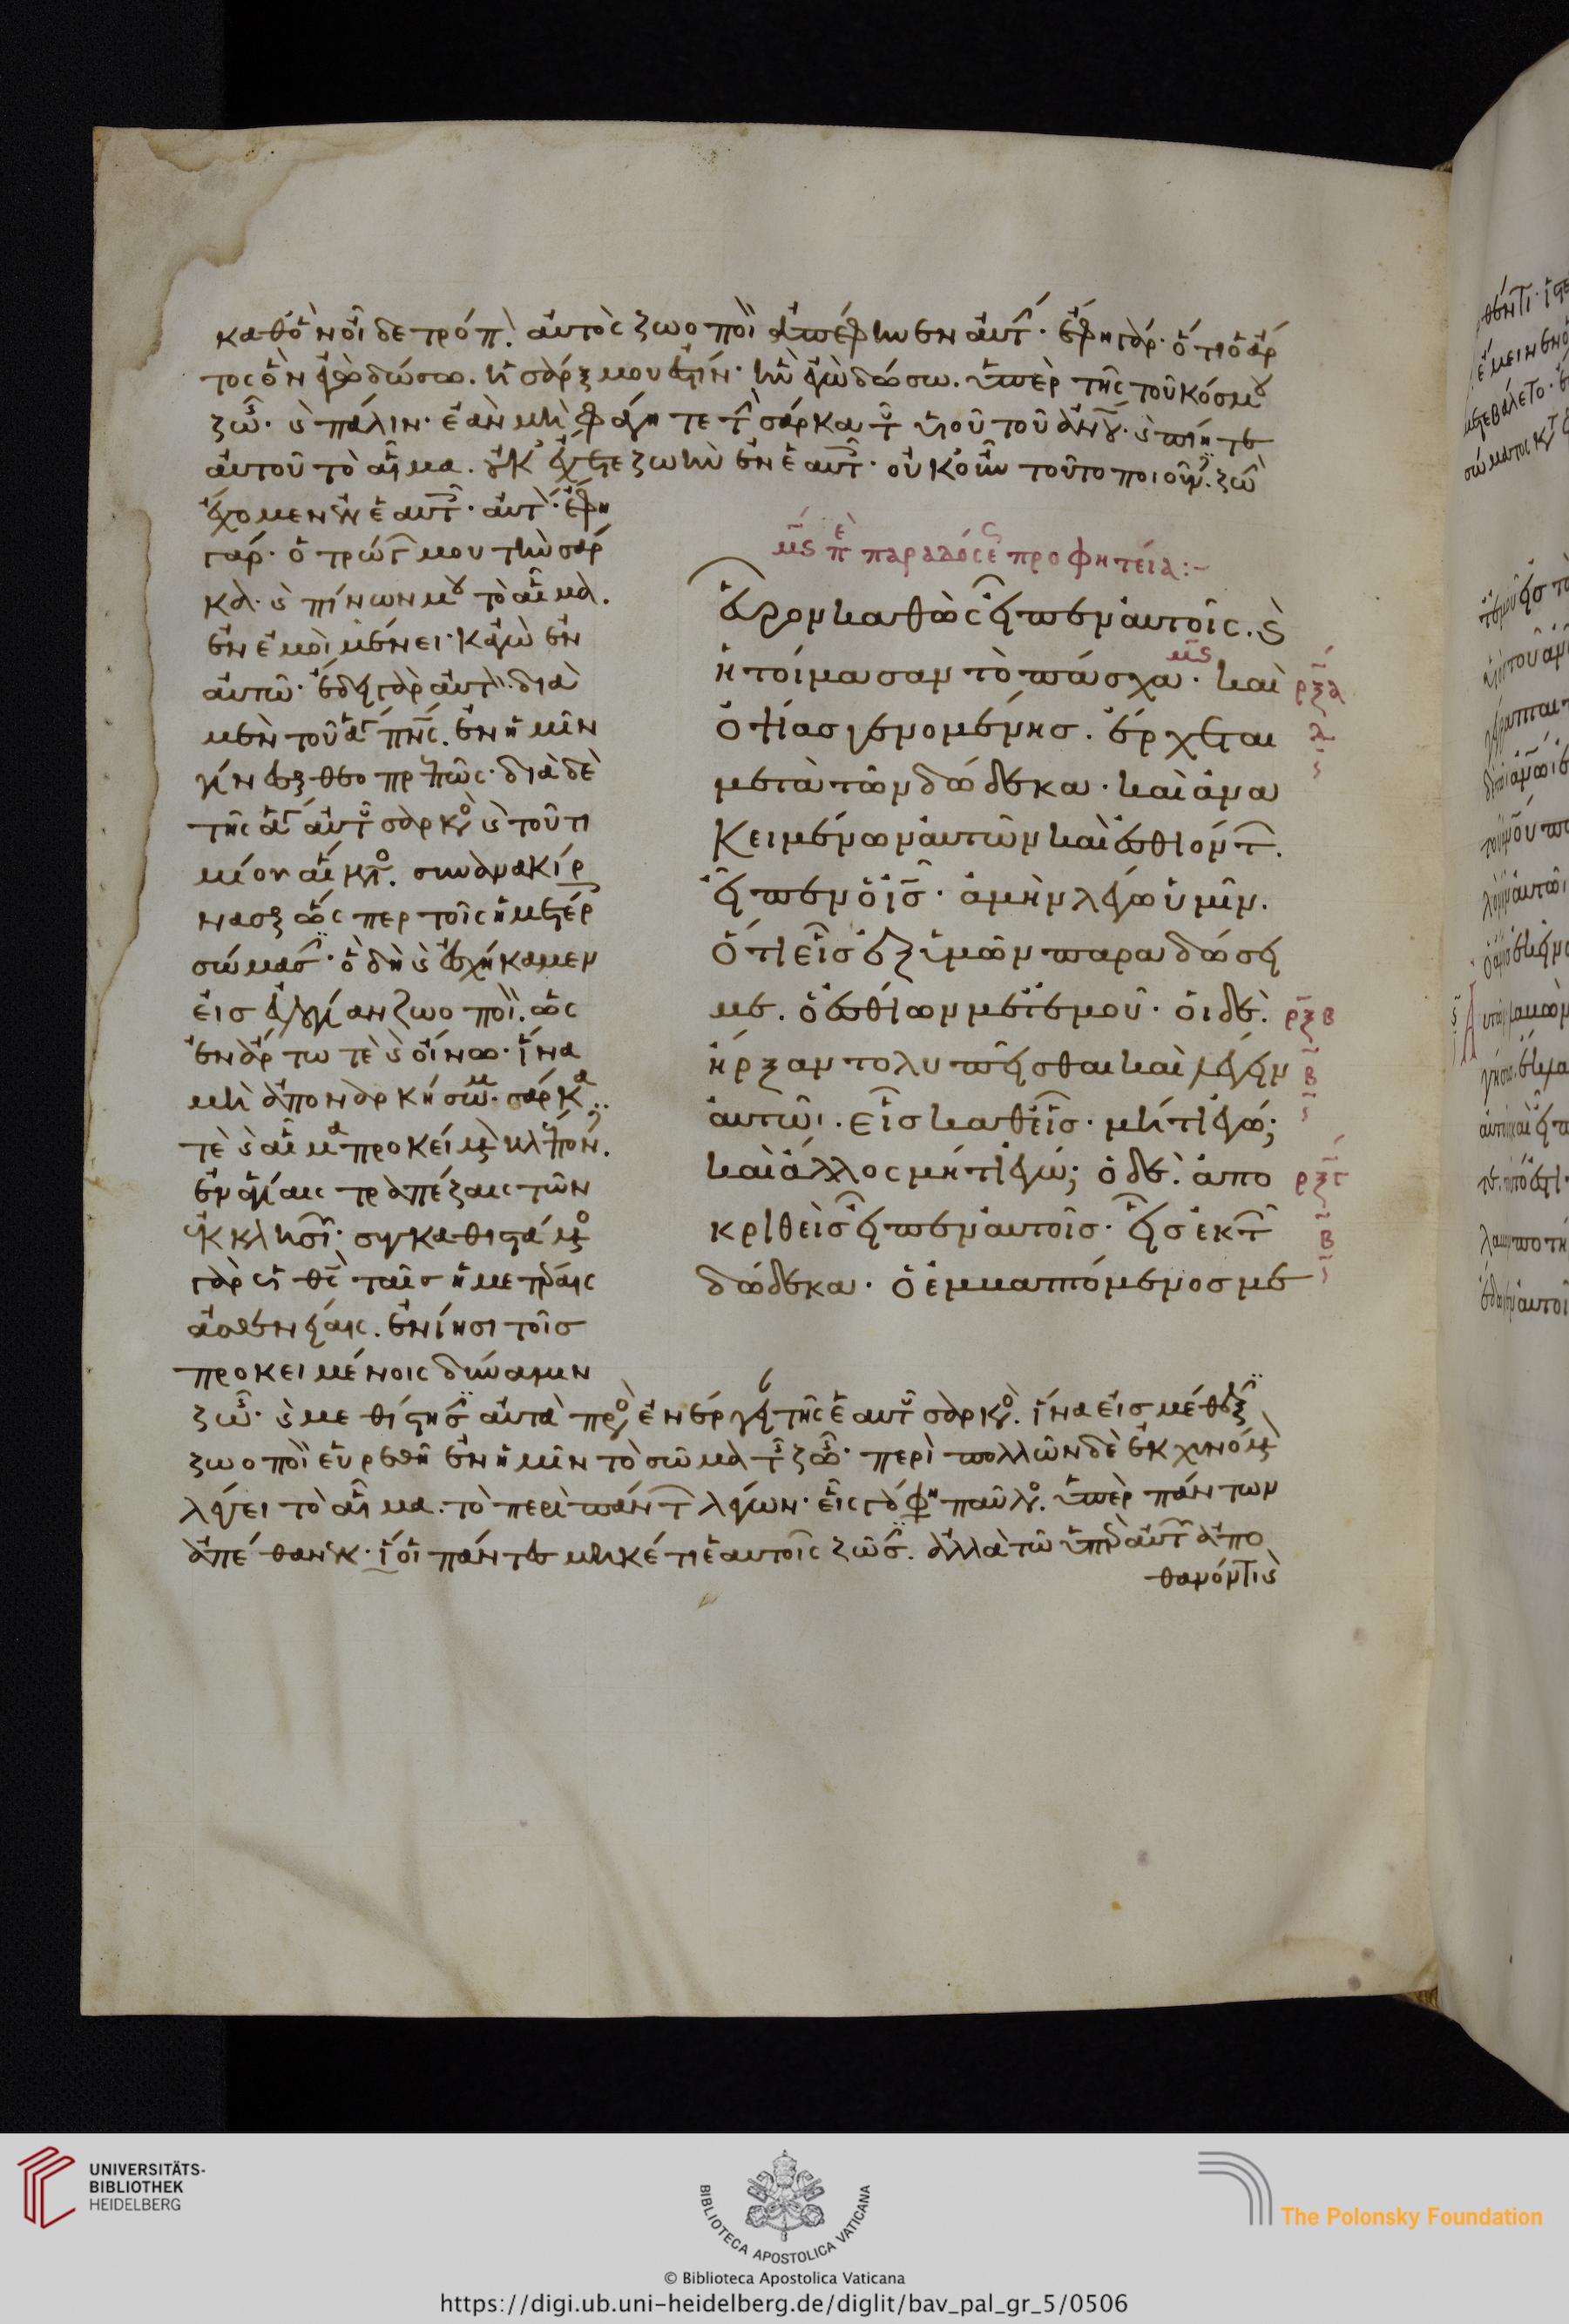 καθ' ὃν οἶδε τρόπ. αὐτὸς ζωοποι ἀπέφηνεν αυτ. ἔφη γάρ. ὅτι ὁ ἄρ
τος ὃν ἐγὼ δώσω. ἡ σάρξ μου ἐστίν. ἣν ἐγὼ δώσω. ὑπὲρ τῆς τοῦ κόσμου
ζω. καὶ πάλιν. ἐὰν μὴ φάγητε τ σάρκα τ υἱοῦ τοῦ ἀνου. καὶ πίητε
αὐτοῦ τὸ αἷμα. οὐκ ἔχετε ζωὴν ἐν ἑαυτ. οὐκοῦν τοῦτο ποιουν. ζω
ἔχομεν ἐν ἑαυτ. αὐτ. ἔφη
γάρ. ὁ τρώγ μου τὴν σάρ
κα. καὶ πίνων μου τὸ αἷμα.
ἐν ἐμοὶ μένει. κἀγὼ ἐν
αὐτῶ. ἔδει γὰρ αὐτ. διὰ
μὲν τοῦ ἁγ πνς. ἐν ἡμῖν
γίνεσθαι θεοπρεπῶς. διὰ δὲ
τῆς ἁγ αὐτοῦ σαρκο καὶ τοῦ τι
μίου αἵματος. συνανακίρ
νασθαι ὥσπερ τοῖς ἡμετέρ
σώμασ. ὃ δὴ καὶ ἐσχήκαμεν
εἰς εὐλογίαν ζωοποι. ὡς
ἐν ἄρτω τὲ καὶ οἴνω. ἵνα
μὴ ἀποναρκήσωμ. σάρκα
τὲ καὶ αἷμα προκείμενον βλέπον.
ἐν ἁγίαις τραπέζαις τῶν
ἐκκλησι. συγκαθιστάμενος
γὰρ ὁ θς ταῖς ἡμετέραις
ἀσθενείαις. ἐνίησι τοῖς
προκειμένοις δύναμιν
ζω. καὶ μεθίστησ αὐτὰ πρὸς ἐνέργει τῆς ἑαυτοῦ σαρκο. ἵνα εἰς μέθεξ
ζωοποι εὑρεθῆ ἐν ἡμῖν τὸ σῶμα τ ζω. περὶ πολλῶν δὲ ἐκχυνόμενον
λέγει τὸ αἷμα. τὸ περὶ πάντ λέγων. εἷς γάρ φη παῦλο. ὑπὲρ πάντων
ἀπέθανεν. ἵ οἱ πάντες μηκέτι ἑαυτοῖς ζῶσ. ἀλλὰ τῶ ὑπὲρ αὐτ ἀπο
θανόντι καὶ
μς π παραδόσε προφητεία:-
εὗρον καθὼς εἶπεν αὐτοῖς. καὶ
ἡτοίμασαν τὸ πάσχα. μς καὶ
ὀψίας γενομένης. ἔρχεται
μετὰ τῶν δώδεκα. καὶ ἀνα
κειμένων αὐτῶν καὶ ἐσθιόντ.
εἶπεν ὁ ις. ἀμὴν λέγω ὑμῖν.
ὅτι εἷς ἐξ ὑμῶν παραδώσει
με. ὁ ἐσθίων μετ' ἐμοῦ. οἱ δὲ.
ἤρξαντο λυπεῖσθαι καὶ λέγειν
αὐτῶ. εἷς καθεῖς. μήτι ἐγώ;
καὶ ἄλλος μήτι ἐγώ; ὁ δὲ. ἀπο
κριθεὶς εἶπεν αὐτοῖς. εἷς ἐκ τ
δώδεκα. ὁ ἐμβαπτόμενος με
ρξα
δ
ρξβ
β
ρξγ
β
UNIVERSITÄTS-
BIBLIOTHEK
HEIDELBERG
BIBLIOTECA APOSTOLICA VATICANA
The Polonsky Foundation
© Biblioteca Apostolica Vaticana
https://digi.ub.uni-heidelberg.de/diglit/bav_pal_gr_5/0506